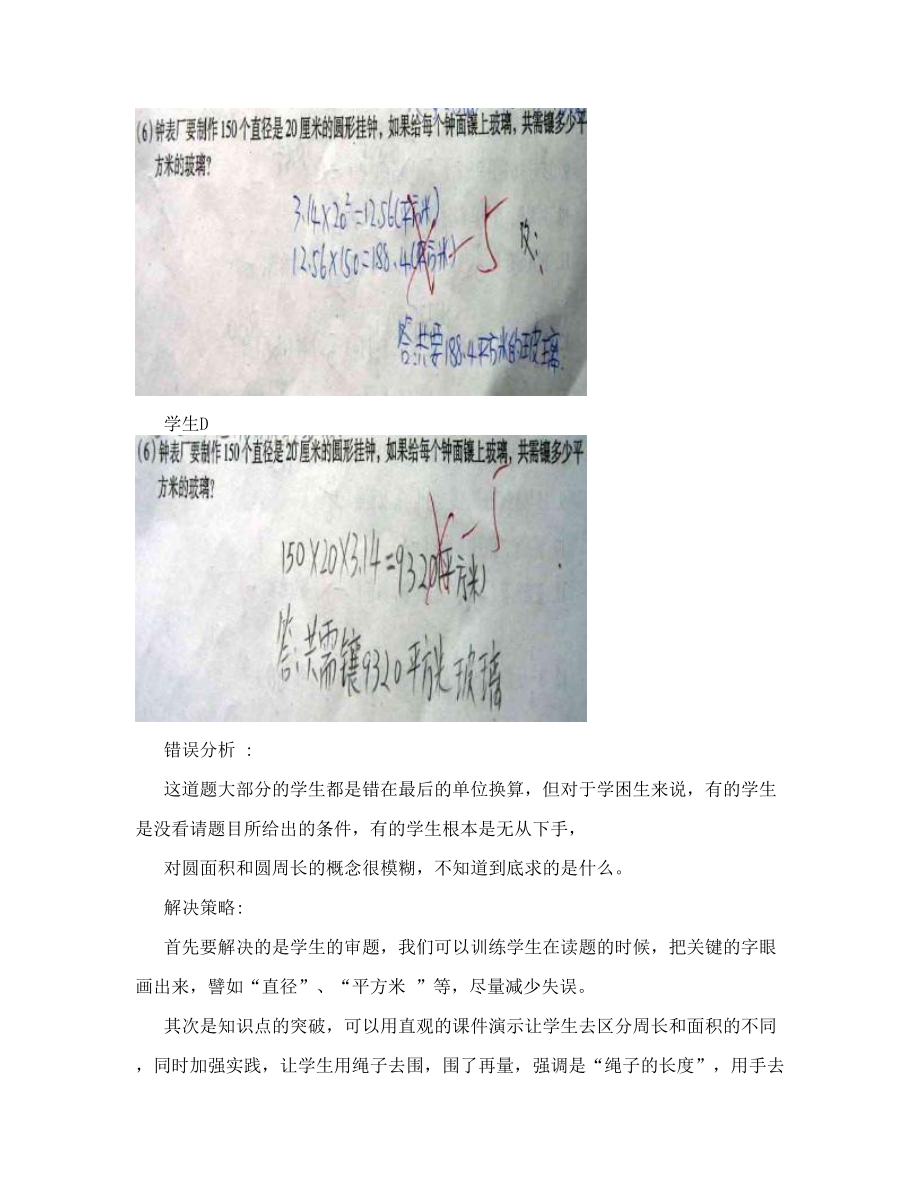 (6)钟表厂要制作150个直径是20厘米的圆形挂钟，如果给每个钟面镶上玻璃，共需镶多少平
方米的玻璃？
3.14×20²=12.56(平方米)
12.56×150=188.4(平方米)
-5
改：
答:共要188.4平方米的玻璃.
学生D
(6)钟表厂要制作150个直径是20厘米的圆形挂钟，如果给每个钟面镶上玻璃，共需镶多少平
方米的玻璃？
-5
150×20×3.14=9320(平方米)
答:共需镶9320平方米玻璃
错误分析 :
这道题大部分的学生都是错在最后的单位换算，但对于学困生来说，有的学生
是没看请题目所给出的条件，有的学生根本是无从下手，
对圆面积和圆周长的概念很模糊，不知道到底求的是什么。
解决策略:
首先要解决的是学生的审题，我们可以训练学生在读题的时候，把关键的字眼
画出来，譬如“直径”、“平方米 ”等，尽量减少失误。
其次是知识点的突破，可以用直观的课件演示让学生去区分周长和面积的不同
，同时加强实践，让学生用绳子去围，围了再量，强调是“绳子的长度”，用手去